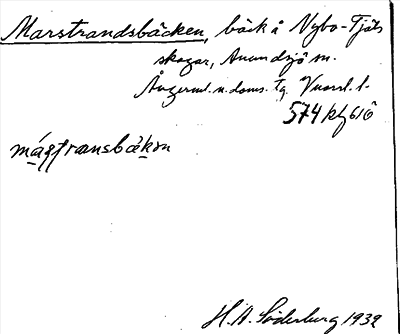 Marstrandsbäcken, bäck å Nybo-Tjäls
skogar, Anundsjö sn.
Ångerml. n. doms. tg. Vnorrl. l.
574 kbf 610
mástransbäkən
H. A. Söderburg 1939